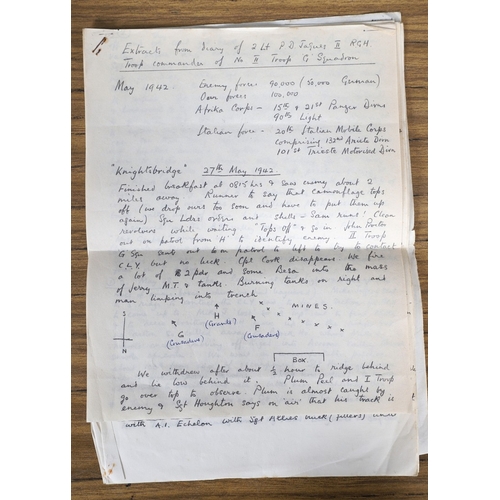 Extracts from Diary of 2 Lt P D Jaques II RGH
Troop commander of No II Troop G Squadron
May 1942
Enemy forces 90,000 (50,000 German)
Own forces 100,000
Afrika Corps - 15th & 21st Panzer Divns
90th Light
Italian force - 20th Italian Mobile Corps
comprising 132nd Ariete Divn
101st Trieste Motorised Divn
"Knightsbridge" 27th May 1942
Finished breakfast at 0815 hrs & saw enemy about 2
miles away. Runner to say that camouflage tops
off (we drop ours too soon and have to put them up
again) Sqn Ldrs orders and shells - Same runs! Clean
revolvers while waiting. 'Tops off' & go in John Proctor
out on patrol from 'H' to identify enemy II Troop
G Sqn sent out on patrol to left to try to contact
C.L.Y. but no luck. Cpt Cook disappears We fire
a lot of 2 pdo and some Besa into the mass
of Jerry M.T. & tanks. Burning tanks on right and
man limping into trench.
S
N
MINES.
H
(Grants)
G
(Crusaders)
F
(Crusaders)
BOX
We withdrew after about ½ hour to ridge behind
and lie low behind it. Plum Peel and I Troop
go over top to observe. Plum is almost caught by
enemy & Sgt Houghton says on 'air' that his track is
with A.1. Echelon with Sgt Allies truck (fitters) under